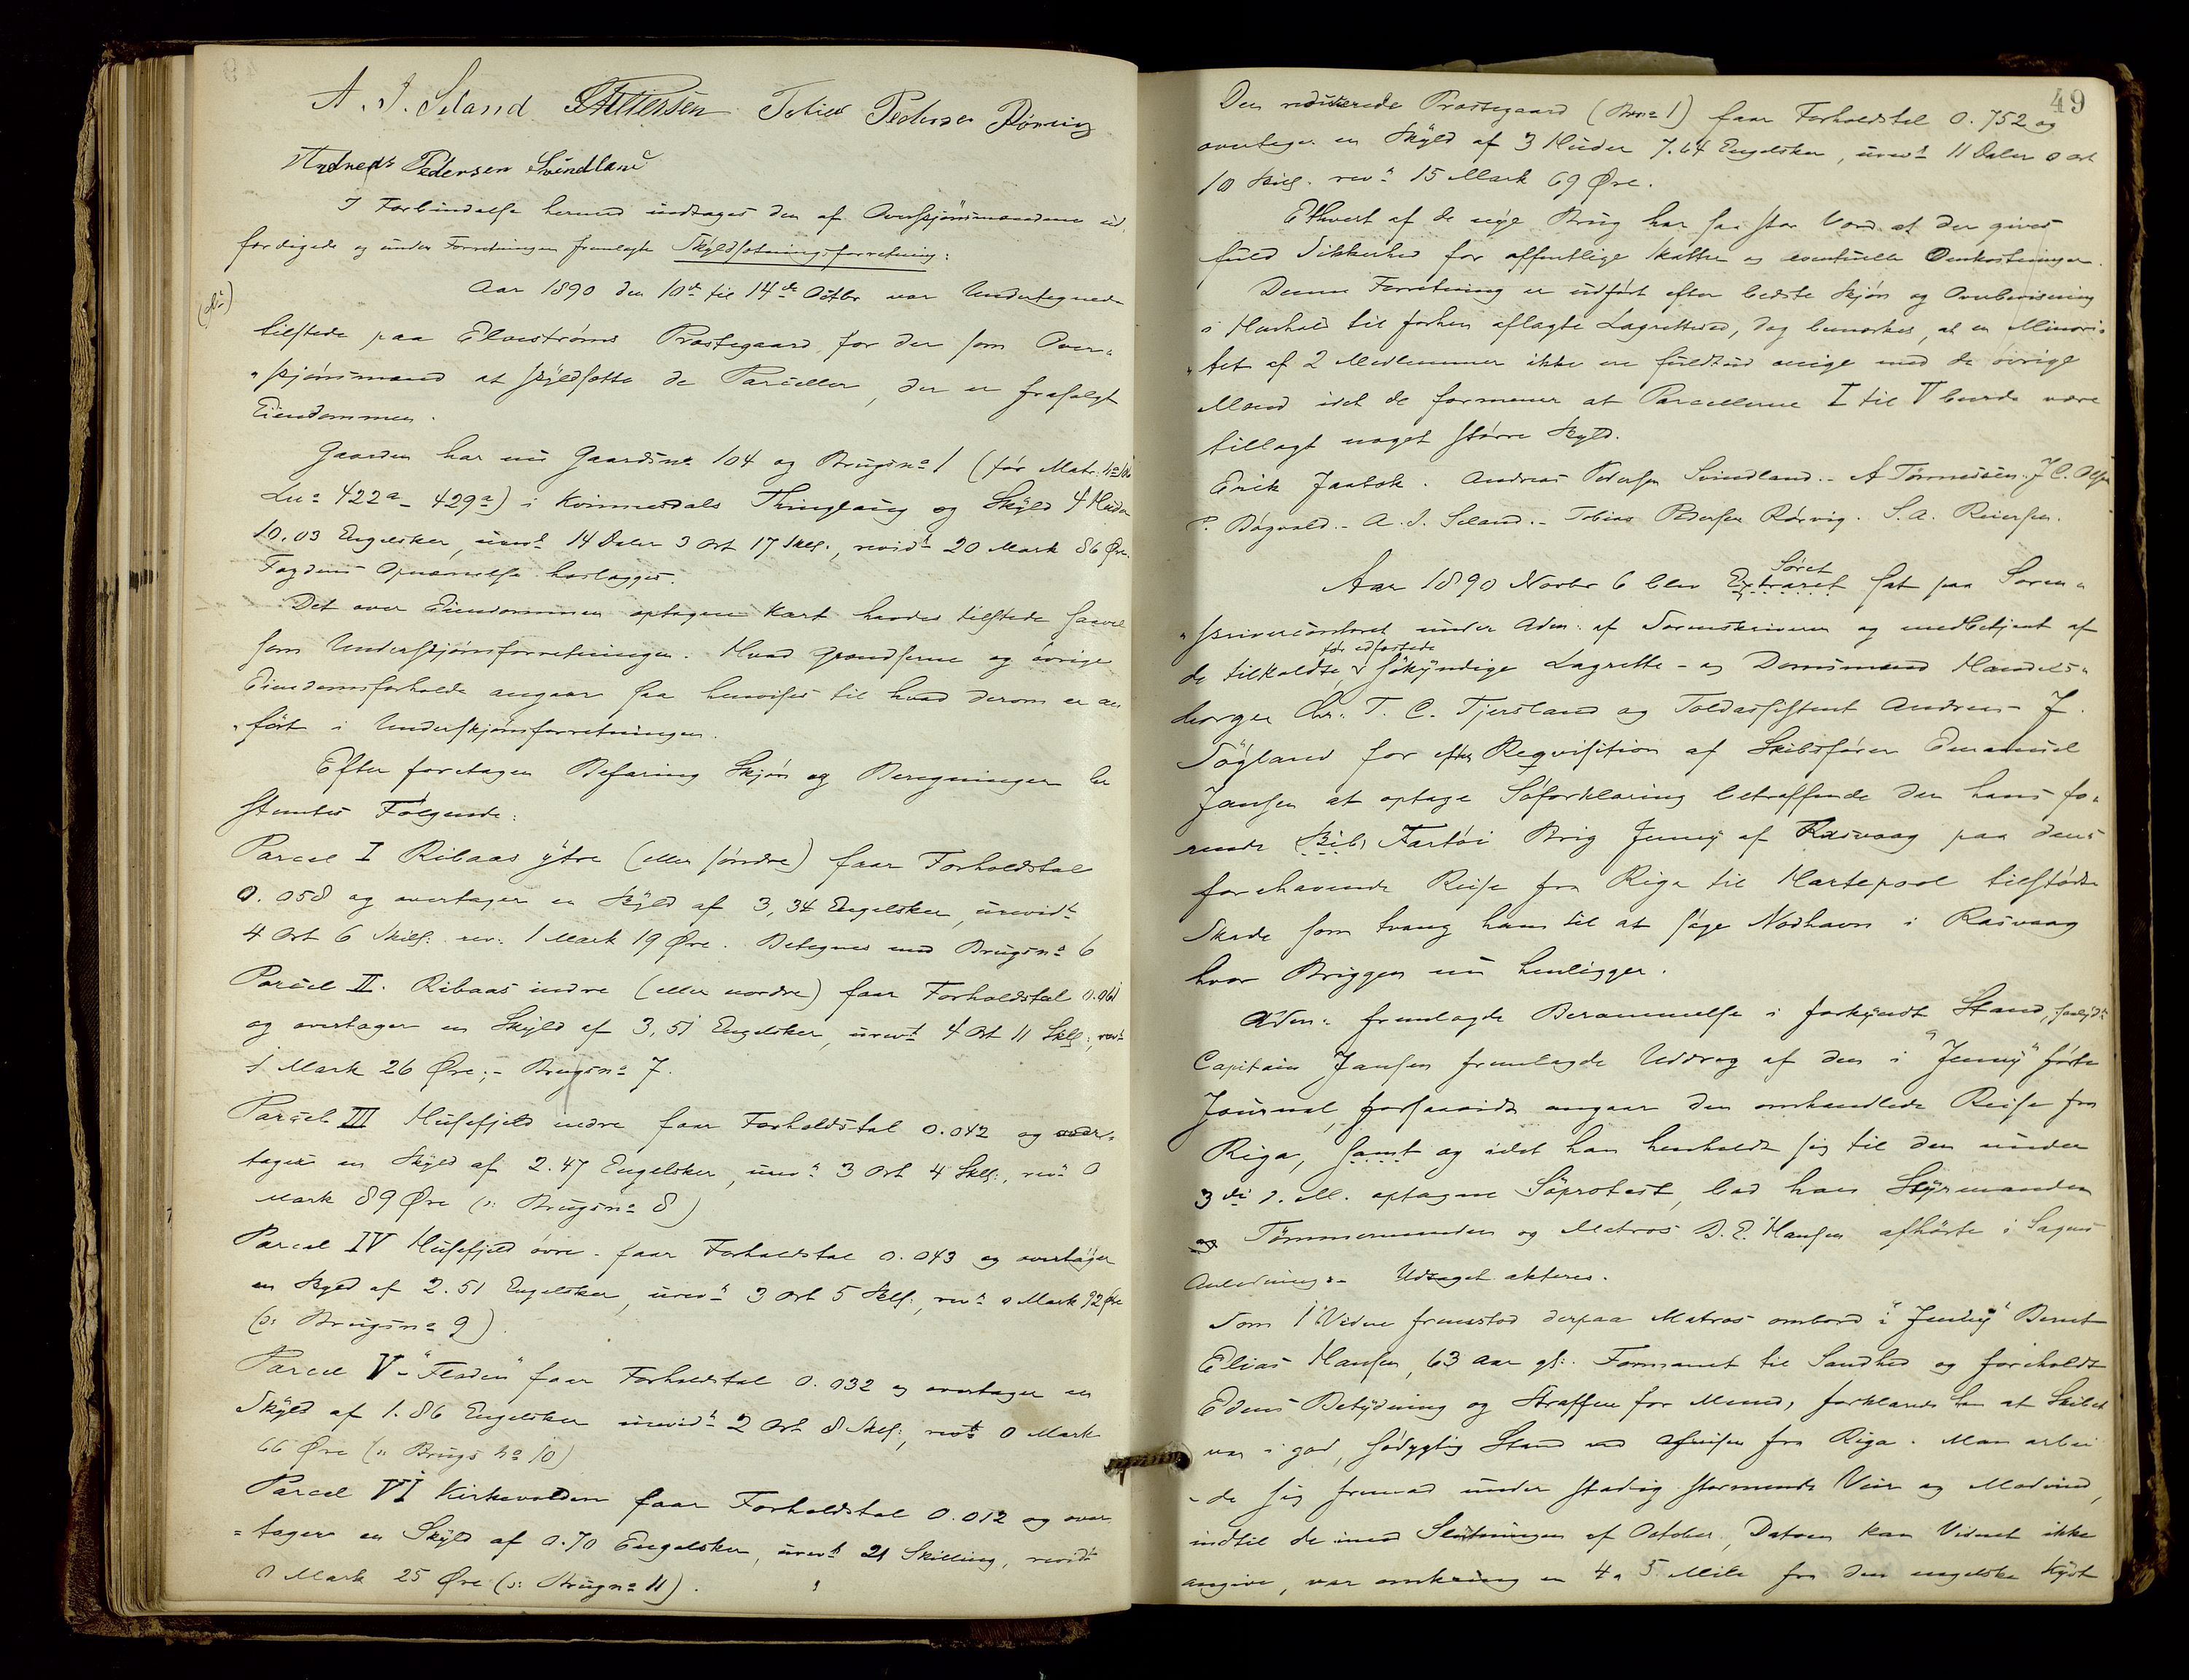 A. I. Seland Tobias Pedersen Rörvig
Andreas Pedersen Svindland
I Forbindelse hermed indtages den af Overskjönsmændene ud
færdigede og under Forretningen fremlagte Skyldsætningsforretning:
Aar 1890 den 10de til 14de Octbr var Undertegnede
tilstede paa Elvestrøms Præstegaard for der som Over-
"skjönsmænd at skyldsætte de Parceller, der er frasolgt
Eiendommen.
Gaarden har nu Gaardsno 104 og Brugsno 1 (før Matr. no
Lno 422a - 429a) i Kvinesdals Thinglaug og Skyld 4 Huder
10.03 Engelsker, urevt 14 Daler 3 Ort 17 Skll:, revidt 20 Mark 86 Øre.
Fogdens Opnævnelse hoslægges.
Det over Eiendommen optagne Kart havdes tilstede saavel
som Underskjønsforretningen. Hvad Grændserne og övrige
Eiendomsforholde angaar saa henvises til hvad derom er an
"fört i Underskjønsforretningen.
Efter foretagen Befaring Skjøn og Beregninger be
stemtes Følgende:
Parcel I Ribaas ytre (eller söndre) faar Forholdstal
0.058 og overtager en Skyld af 3,34 Engelsker, urevidt
4 Ort 6 Skill: rev: 1 Mark 19 Øre. Betegnes med Brugsno 6
Parcel II. Ribaas indre (eller nordre) faar Forholdstal 0.061
og overtager en Skyld af 3,51 Engelsker, urevt 4 Ort 11 Skll:, revt
1 Mark 26 Øre;- Brugsno 7.
Parcel III Husefjeld nedre faar Forholdstal 0.042 og over-
tager en Skyld af 2.47 Engelsker, urevt 3 Ort 4 Skll:, revt 0
Mark 89 Øre (ɔ: Brugsno 8)
Parcel IV Husefjeld övre - faar Forholdstal 0.043 og overtager
en Skyld af 2.51 Engelsker, urevt 3 Ort 5 Skll:, revt 0 Mark 92 Øre
(ɔ: Brugsno 9).
Parcel V - "Fladen" faar Forholdstal 0.032 og overtager en
Skyld af 1.86 Engelsker urevidt 2 Ort 8 Skll:, revt 0 Mark
66 Øre (ɔ: Brugs no 10)
Parcel VI Kirkevolden faar Forholdstal 0.012 og over
=tager en Skyld af 0.70 Engelsker, urevt 21 Skilling, revidt
0 Mark 25 Øre (ɔ: Brugno 11).
49
Den reducerede Præstegaard (Brno 1) faar Forholdstal 0.752 og
overtager en Skyld af 3 Huder 7.64 Engelsker, urevt 11 Daler 0 Ort
10 Skill. revt 15 Mark 69 Øre.
Ethvert af de nye Brug har saa stor Værd at der gives
fuld Sikkerhed for offentlige Skatter og eventuelle Omkostninger.
Denne Forretning er udfört efter bedste Skjøn og Overbevisning
i Henhold til forhen aflagte Lagrettesed, dog bemærkes, at en Minori-
"tet af 2 Medlemmer ikke er fuldtud enige med de övrige
Mænd idet de formener at Parcellerne I til V burde være
tillagt noget større Skyld.
Erik Jaabæk. Andreas Pedersen Svindland. - A Tønnessen. J C. Olsen
P. Bøgvald. - A. I. Seland. - Tobias Pedersen Rørvig. S. A. Reiersen.
Aar 1890 Novbr 6 blev Extraret Söret sat paa Soren-
"skrivercontoret under Adm: af Sorenskriveren og medbetjent af
de tilkaldte, for edfæstede sökyndige Lagrette - og Domsmænd Handels-
borger Chr. T. C. Tjersland og Toldassistent Andreas J.
Tögland for efter Reqvisition af Skibsfører Emanuel
Jansen at optage Söforklaring betræffende den hans fø-
rende Skibs Fartøi Brig Jenny af Rasvaag paa dens
forehavende Reise fra Riga til Hartepool tilstødte
Skade som tvang ham til at søge Nødhavn i Rasvaag
hvor Briggen nu henligger.
Adm: fremlagde Berammelse i forkyndt Stand,
Capitain Jansen fremlagde Uddrag af den i "Jenny" førte
Journal, forsaavidt angaar den omhandlede Reise fra
Riga, samt og idet han henholdt sig til den under
3die d. M. optagne Söprotest, bad han Styrmanden
og Tömmermanden og Matros B. E. Hansen afhørte i Sagens
Anledning. - Uddraget akteres.
Som 1 Vidne fremstod derpaa Matros ombord i "Jenny" Bernt
Elias Hansen, 63 Aar gl:. Formanet til Sandhed og foreholdt
Edens Betydning og Straffen for Mened, forklarede han at Skibet
var i god, sødygtig Stand ved Afreisen fra Riga. Man arbei
-de sig fremad under stadig stormende Veir og Modvind,
indtil de imod Slutningen af October, Datoen kan Vidnet ikke
angive, var omkring en 4 a 5 Mile fra den engelske Kyst